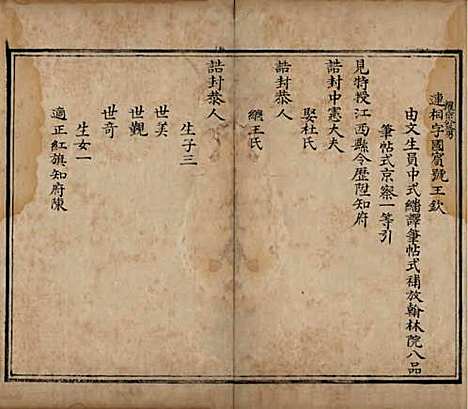 連相字國賓號王欽
由文生員中式繙譯筆帖式補放翰林院八品
筆帖式京察一等引
見特授江西縣令歷陞知府
誥封中憲大夫
娶杜氏
誥封恭人
繼王氏
誥封恭人
生子三
世美
世觀
世奇
生女一
適正紅旗知府陳